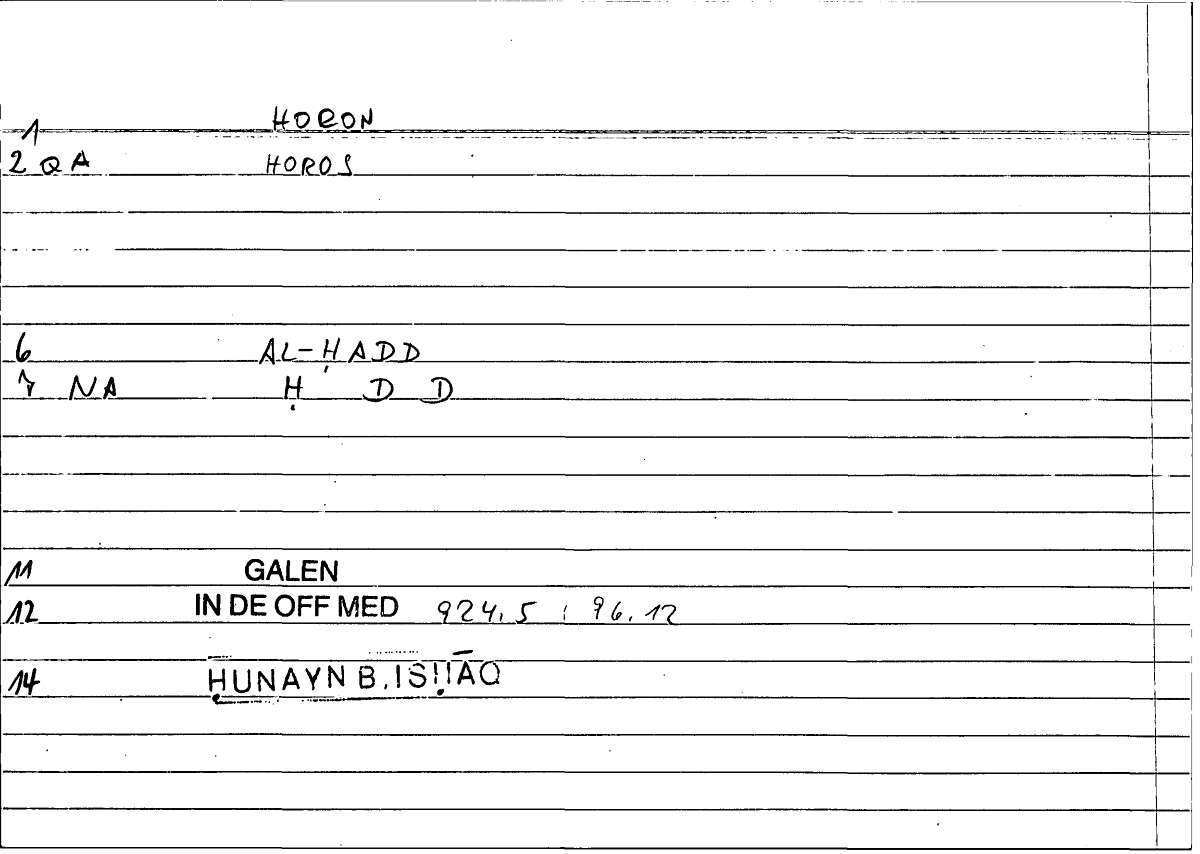 1 HORON
2 QA HOROS
6 AL-ḤADD
7 NA Ḥ D D
11 GALEN
12 IN DE OFF MED 924,5 ; 96.12
14 ḤUNAYN B. ISḤĀQ